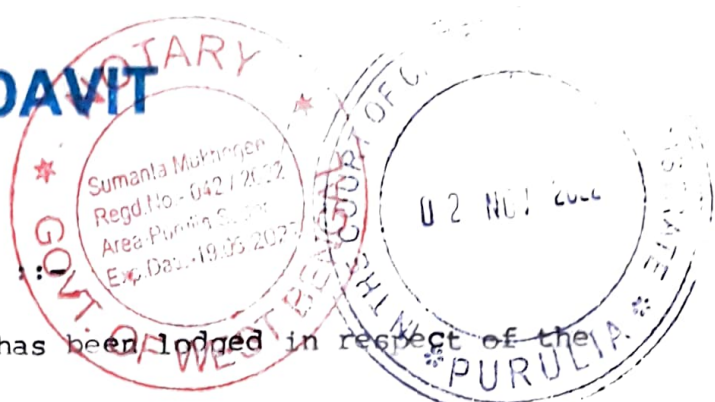 DAVIT
NOTARY
GOVT. OF WEST BENGAL
Sumanta Mukherjee
Regd.No.- 042 / 2022
Area-Purulia
Exp.Dat.-19.09.202
IN THE COURT OF
PURULIA
02 NOV 2022
:
has been lodged in respect of the